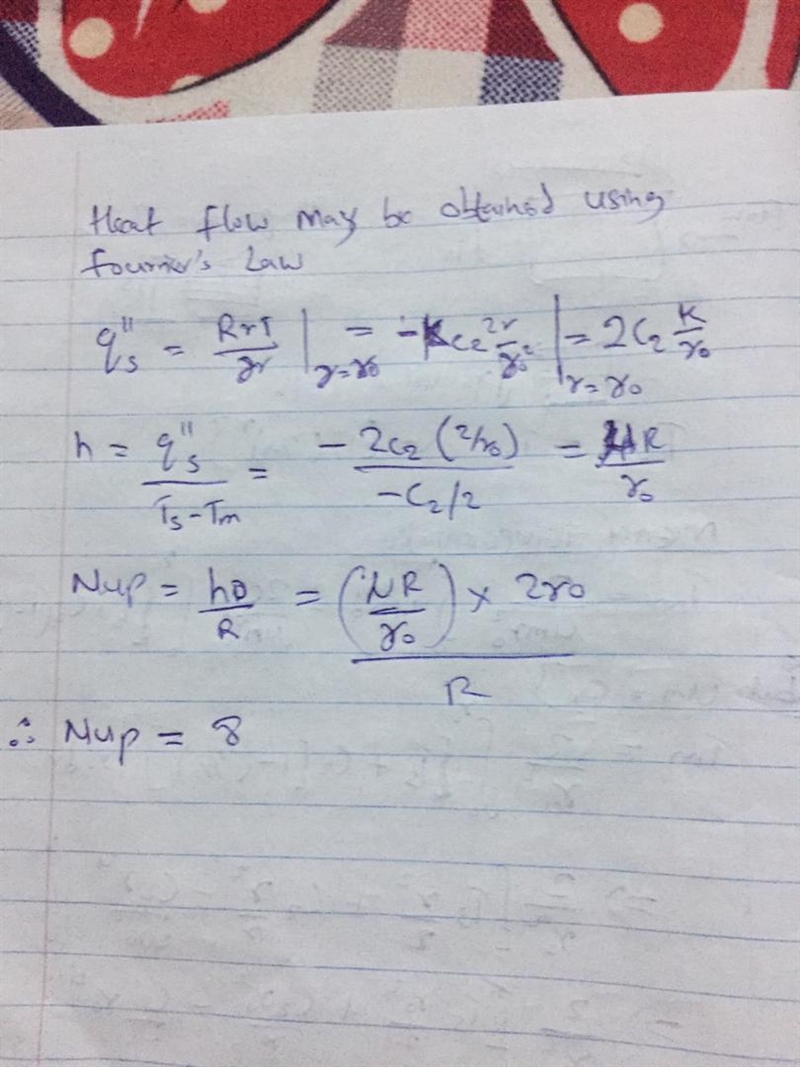 Heat flow may be obtained using
Fourier's Law
q''s = RrT/∂r |r=r0 = -K c2 2r/r0² |r=r0 = 2C2 K/r0
h = q''s/(Ts-Tm) = -2c2 (2/r0)/(-C2/2) = 4R/r0
NuD = hD/R = (4R/r0) × 2r0 / R
∴ NuD = 8